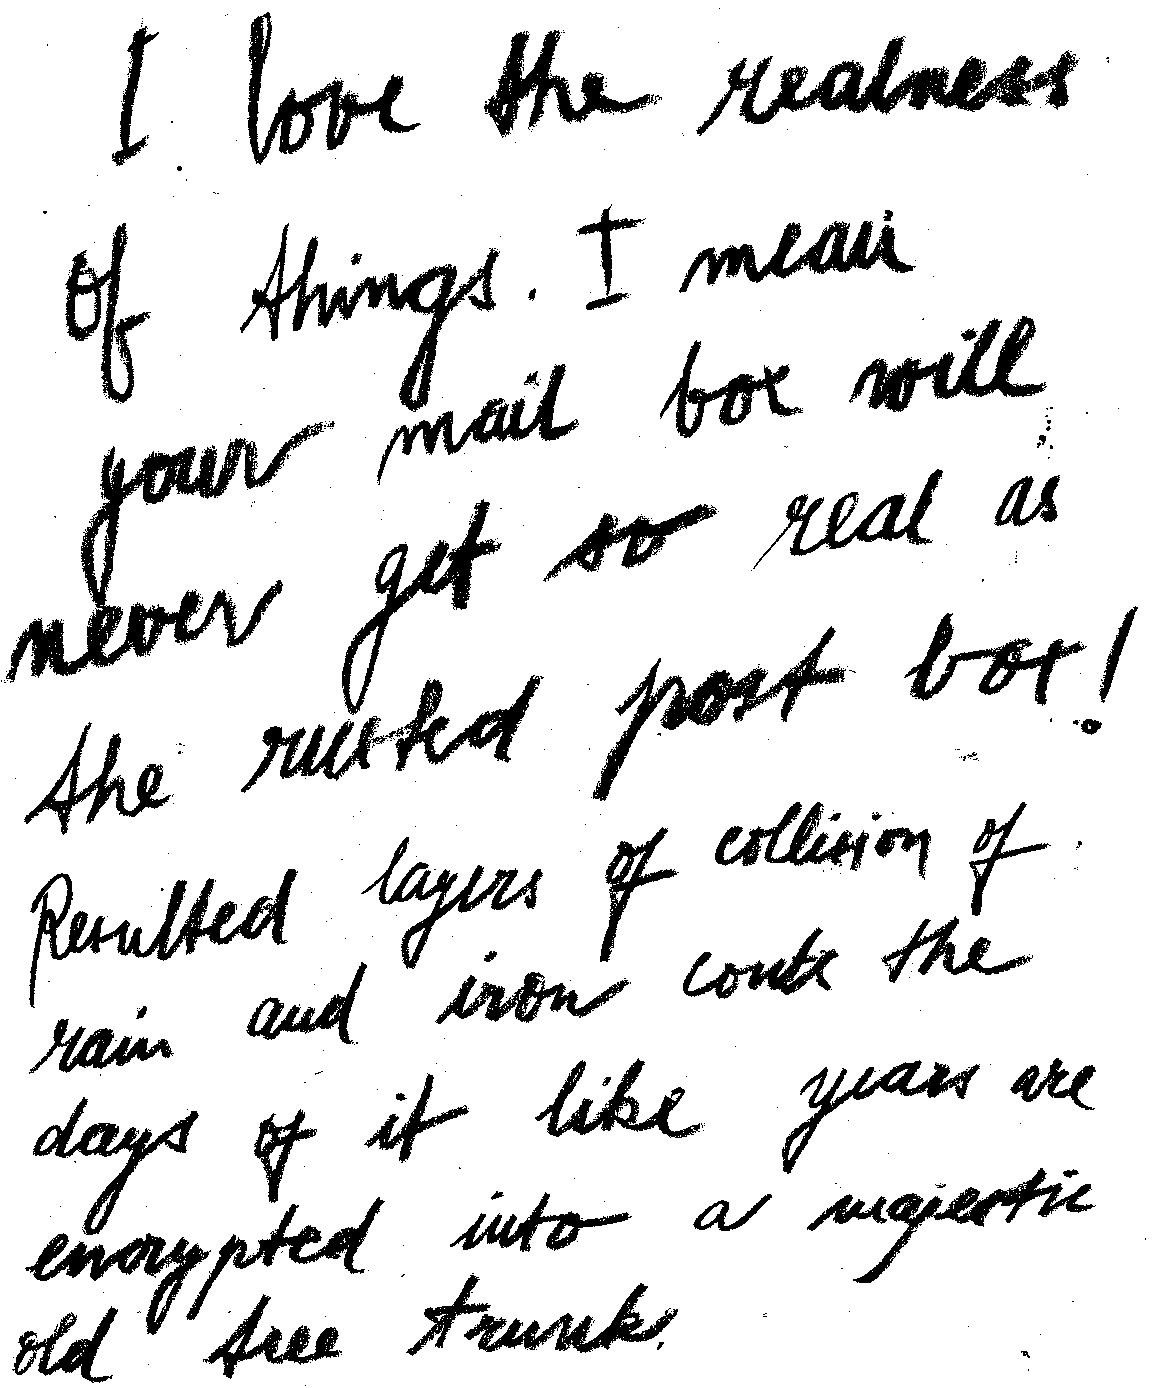 I love the realness
of things. I mean
your mail box will
never get so real as
the rusted post box!
Resulted layers of collision of
rain and iron conte the
days of it like years are
encrypted into a majestic
old tree trunk.